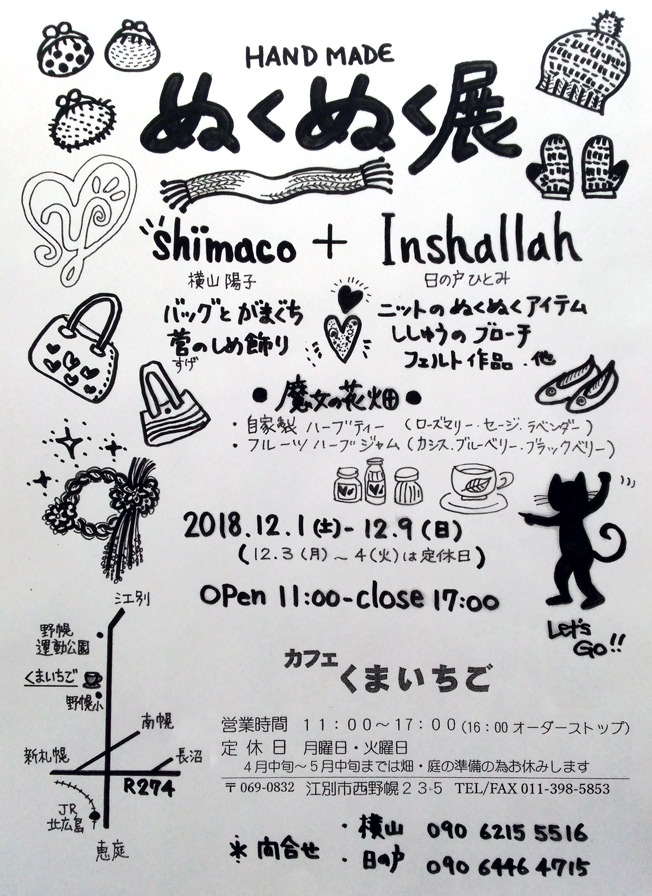 HAND MADE
ぬくぬく展
shimaco + Inshallah
横山 陽子
日の戸 ひとみ
バッグと がまぐち
菅のしめ飾り
すげ
ニットの ぬくぬく アイテム
ししゅうの ブローチ
フェルト 作品 . 他
● 魔女の花畑 ●
・自家製 ハーブティー (ローズマリー・セージ・ラベンダー)
・フルーツハーブジャム (カシス.ブルーベリー.ブラックベリー)
2018.12.1(土)-12.9(日)
(12.3(月)~4(火)は定休日)
OPen 11:00-close 17:00
Let's
Go!!
江別
野幌
運動公園
くまいちご
野幌小
南幌
新札幌
長沼
R274
JR
北広島
恵庭
カフェ
くまいちご
営業時間 11:00〜17:00(16:00オーダーストップ)
定休日 月曜日・火曜日
4月中旬〜5月中旬までは畑・庭の準備の為お休みします
〒069-0832 江別市西野幌235 TEL/FAX 011-398-5853
* 問合せ
・横山 090 6215 5516
・日の戸 090 6446 4715